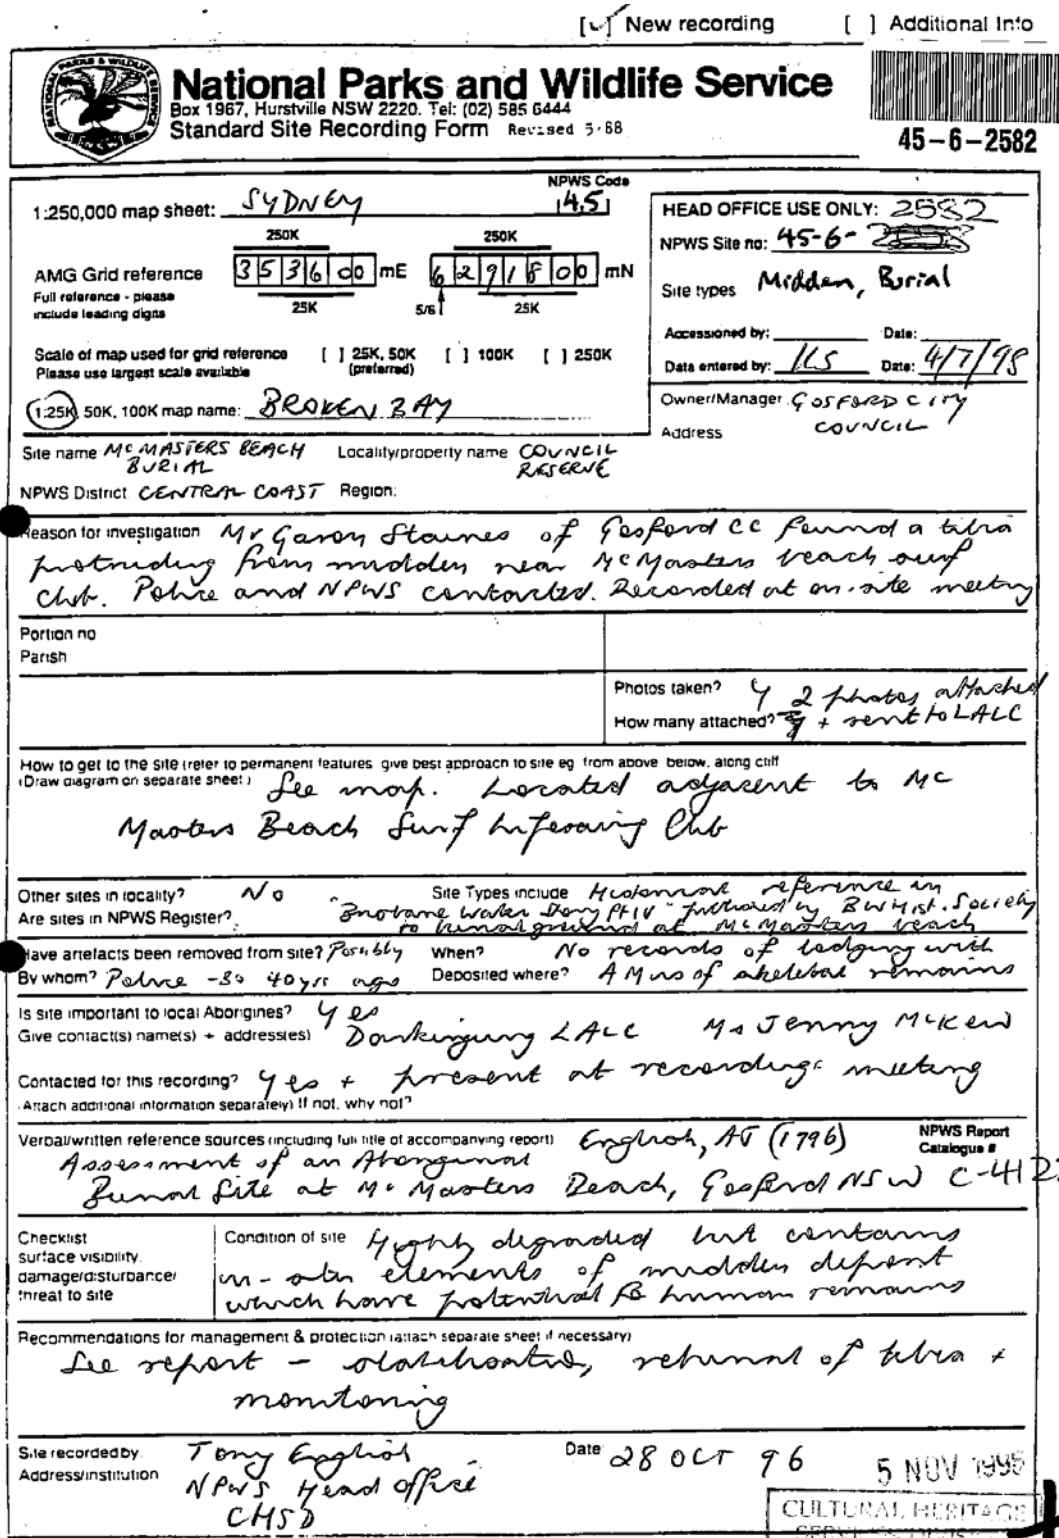 [✓] New recording [ ] Additional Info
NATIONAL PARKS & WILDLIFE SERVICE
National Parks and Wildlife Service
Box 1967, Hurstville NSW 2220. Tel: (02) 585 6444
Standard Site Recording Form Revised 5·88
45-6-2582
1:250,000 map sheet: SYDNEY
NPWS Code
45
250K 250K
AMG Grid reference 353600 mE 6291800 mN
Full reference - please
include leading digits
25K 5/6 25K
Scale of map used for grid reference [ ] 25K, 50K [ ] 100K [ ] 250K
Please use largest scale available (preferred)
1:25K, 50K, 100K map name: BROKEN BAY
HEAD OFFICE USE ONLY: 2582
NPWS Site no: 45-6-
Site types Midden, Burial
Accessioned by: Date:
Data entered by: Date: 4/7/98
Owner/Manager GOSFORD CITY
COUNCIL
Address
Site name McMASTERS BEACH
BURIAL
Locality/property name COUNCIL
RESERVE
NPWS District CENTRAL COAST Region:
Reason for investigation Mr Garon Staines of Gosford CC found a tibia
protruding from midden near McMasters beach surf
club. Police and NPWS contacted. Recorded at on-site meeting
Portion no
Parish
Photos taken? Y 2 photos attached
How many attached? + sent to LALC
How to get to the site (refer to permanent features, give best approach to site eg. from above, below, along cliff
(Draw diagram on separate sheet) See map. Located adjacent to Mc
Masters Beach Surf Lifesaving Club
Other sites in locality? No
Site Types include Historical reference in
Are sites in NPWS Register? "Brisbane Water Story Pt IV" published by BW Hist. Society
to burial ground at McMasters beach
Have artefacts been removed from site? Possibly When? No records of lodging with
By whom? Police - 30 40 yrs ago Deposited where? A Mus of skeletal remains
Is site important to local Aborigines? Yes
Give contact(s) name(s) + address(es) Darkinjung LALC Ms Jenny McKew
Contacted for this recording? Yes + present at recording meeting
(Attach additional information separately) If not, why not?
Verbal/written reference sources (including full title of accompanying report) English, AJ (1996)
NPWS Report
Catalogue #
Assessment of an Aboriginal
Burial Site at McMasters Beach, Gosford NSW C-412
Checklist
surface visibility,
damage/disturbance/
threat to site
Condition of site Highly degraded but contains
in-situ elements of midden deposit
which have potential for human remains
Recommendations for management & protection (attach separate sheet if necessary)
See report - stabilisation, reburial of tibia +
monitoring
Site recorded by Tony English
Address/institution NPWS Head office
CHSD
Date 28 OCT 96
5 NOV 1996
CULTURAL HERITAGE